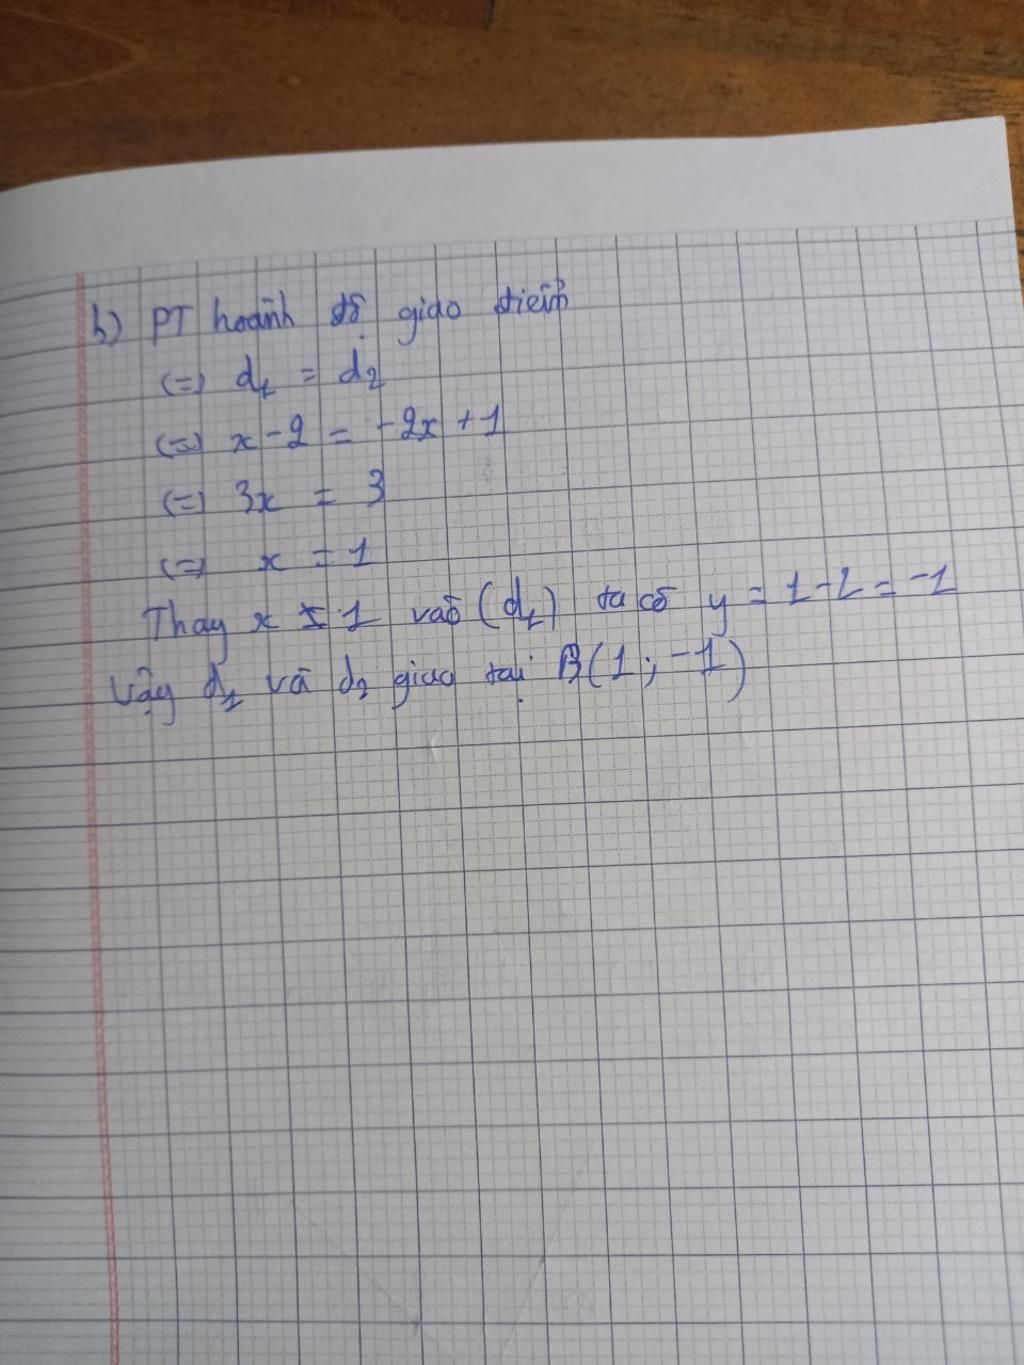 b) PT hoành độ giao điểm
(=) d1 = d2
(=) x - 2 = -2x + 1
(=) 3x = 3
(=) x = 1
Thay x = 1 vào (d1) ta có y = 1 - 2 = -1
Vậy d1 và d2 giao tại B(1; -1)